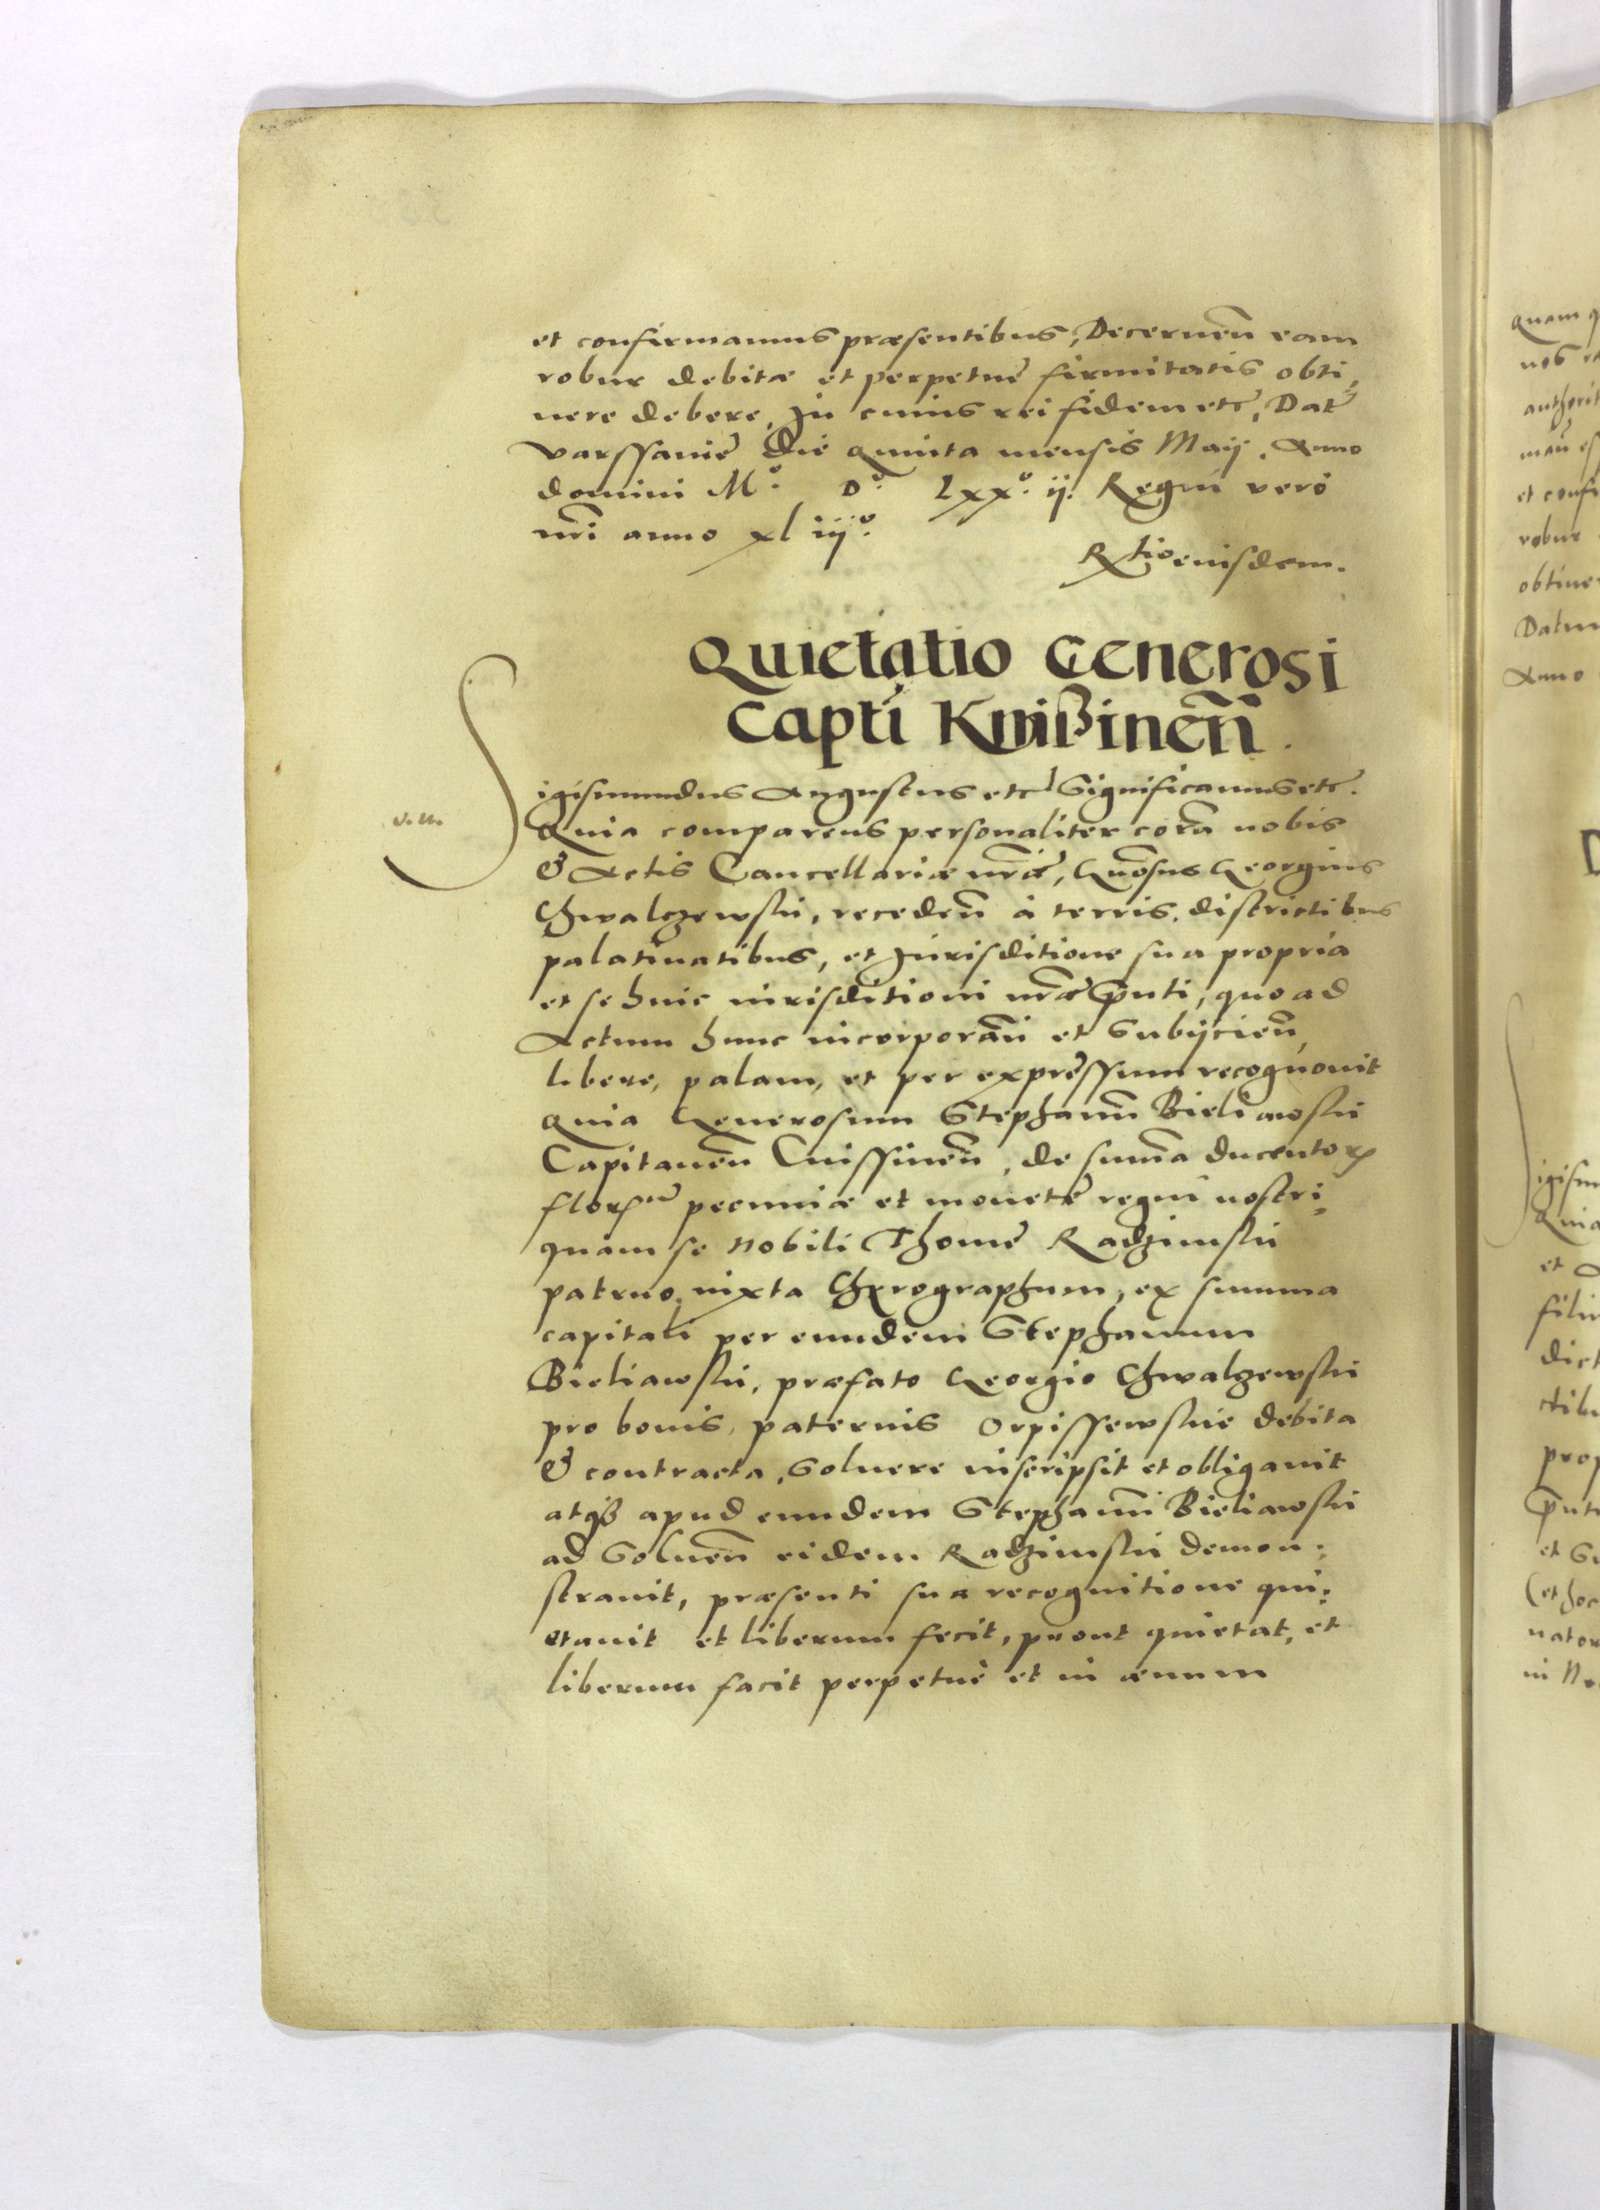 et confirmamus præsentibus, Decernen̄ eam
robur debitæ et perpetuę firmitatis obti,
nere debere, In cuius rei fidem etc̃, Dat̃
varssavię die quinta mensis Maij. Anno
domini M° D° Lxx° ij. Regni vero
nr̃i anno xl iij°.
R̃tio eiusdem.
Quietatio Generosi
Captī Knißinen̄ .
Sigismundus Augustus etc Significamus etc̃.
Quia comparens personaliter corā nobis
& Actis Cancellariæ nr̃æ, Gn̄osus Georgius
Chwalczewski, receden̄ à terris, districtibus
palatinatibus, et Jurisditione sua propria
et se huic iurisditioni nr̃æ p̄nti, quo ad
Actum hunc incorporān et Subijcien̄,
libere, palam, et per expressum recognovit
Quia Generosum Stephanū Bieliawski
Capitanen̄ Cnissinen̄, de sum̄a ducentorꝝ
florꝝ pecuniæ et monetę regni nostri
quam se nobili Thomę Radzimski
patruo iuxta Chyrographum, ex summa
capitali per eundem Stephanum
Bieliawski, præfato Georgio Chwalczewski
pro bonis, paternis Orpissewskie debita
& contracta, Solvere inscripsit et obligavit
atqꝫ apud eundem Stephanū Bieliawski
ad Solven̄ eidem Radzimski demon:
stravit, præsenti sua recognitione qui:
etavit et liberum fecit, prout quietat, et
liberum facit perpetuè et in ævum